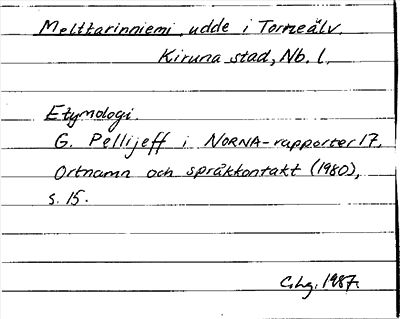 Melttarinniemi, udde i Torneälv.
Kiruna stad, Nb. l.
Etymologi.
G. Pellijeff i NORNA-rapporter 17.
Ortnamn och språkkontakt (1980),
s. 15.
C.hg. 1987.